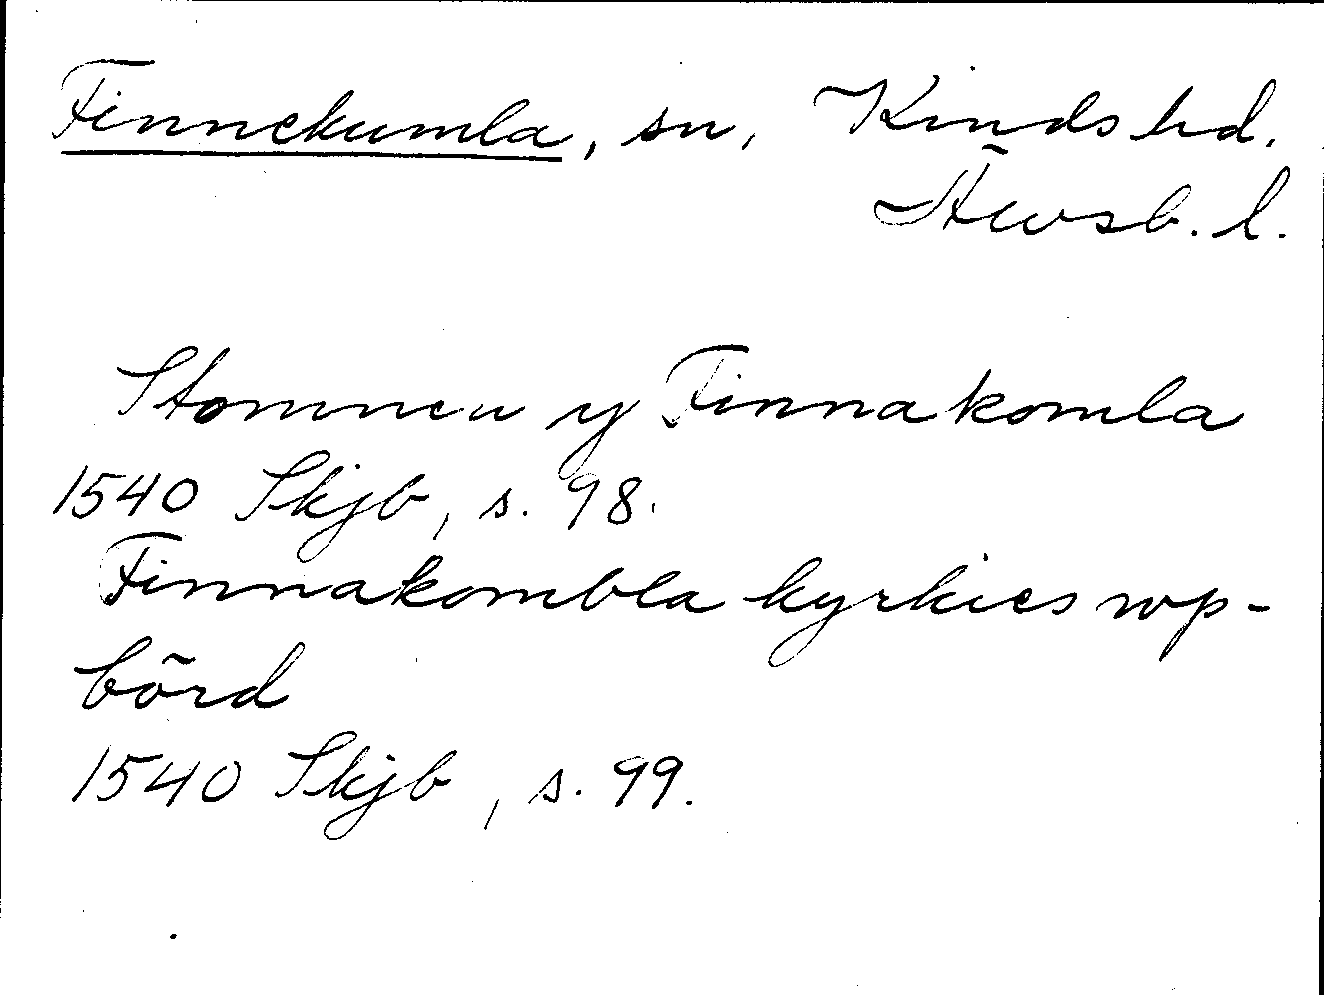 Finnekumla, sn, Kinds hd.
Älvsb. l.
Stommen y Finnakomla
1540 Skjb, s. 98.
Finnakombla kyrkies wp-
börd
1540 Skjb, s. 99.